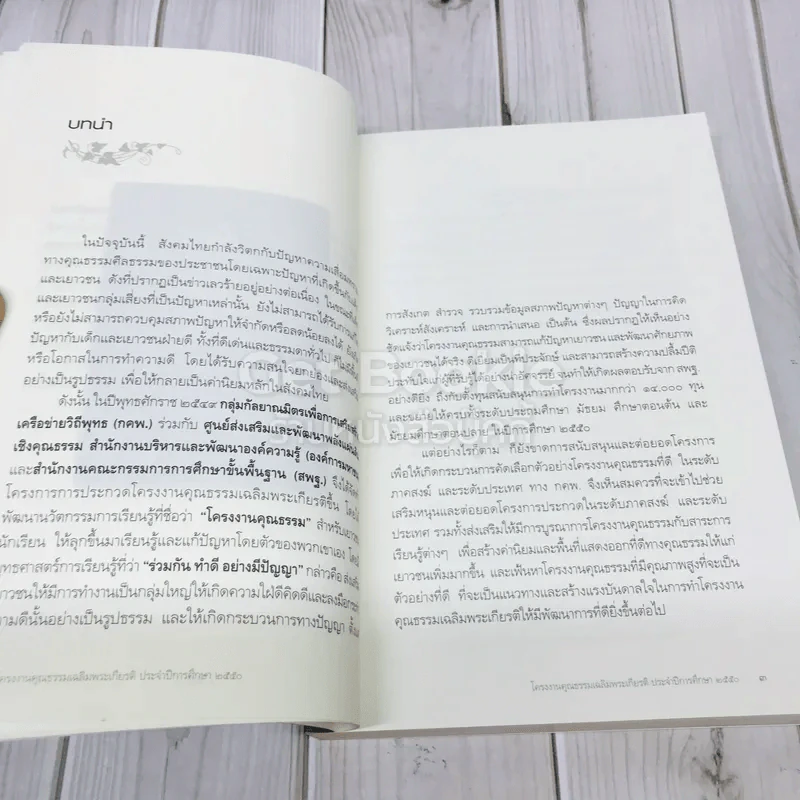 บทนำ
ในปัจจุบันนี้ สังคมไทยกำลังวิตกกับปัญหาความเสื่อม
ทางคุณธรรมศีลธรรมของประชาชนโดยเฉพาะปัญหาที่เกิดขึ้นกับเด็ก
และเยาวชน ดังที่ปรากฏเป็นข่าวเลวร้ายอยู่อย่างต่อเนื่อง ในขณะที่
และเยาวชนกลุ่มเสี่ยงที่เป็นปัญหาเหล่านั้น ยังไม่สามารถได้รับการแก้ไข
หรือยังไม่สามารถควบคุมสภาพปัญหาให้จำกัดหรือลดน้อยลงได้
ปัญหากับเด็กและเยาวชนฝ่ายดี ทั้งที่ดีเด่นและธรรมดาทั่วไป
หรือโอกาสในการทำความดี โดยได้รับความสนใจยกย่องและส่งเสริม
อย่างเป็นรูปธรรม เพื่อให้กลายเป็นค่านิยมหลักในสังคมไทย
ดังนั้น ในปีพุทธศักราช ๒๕๔๙ กลุ่มกัลยาณมิตรเพื่อการ
เครือข่ายวิถีพุทธ (กคพ.) ร่วมกับ ศูนย์ส่งเสริมและพัฒนาพลังแผ่นดิน
เชิงคุณธรรม สำนักงานบริหารและพัฒนาองค์ความรู้ (องค์การมหาชน)
และสำนักงานคณะกรรมการการศึกษาขั้นพื้นฐาน (สพฐ.) จึงได้
โครงการการประกวดโครงงานคุณธรรมเฉลิมพระเกียรติขึ้น
พัฒนานวัตกรรมการเรียนรู้ที่ชื่อว่า “โครงงานคุณธรรม” สำหรับ
นักเรียน ให้ลุกขึ้นมาเรียนรู้และแก้ปัญหาโดยตัวของพวกเขาเอง
พุทธศาสตร์การเรียนรู้ที่ว่า “ร่วมกัน ทำดี อย่างมีปัญญา” กล่าวคือ
เยาวชนให้มีการทำงานเป็นกลุ่มใหญ่ให้เกิดความใฝ่ดีคิดดีและลงมือ
ความดีนั้นอย่างเป็นรูปธรรม และให้เกิดกระบวนการทางปัญญา
โครงงานคุณธรรมเฉลิมพระเกียรติ ประจำปีการศึกษา ๒๕๕๐
การสังเกต สำรวจ รวบรวมข้อมูลสภาพปัญหาต่างๆ ปัญญาในการคิด
วิเคราะห์สังเคราะห์ และการนำเสนอ เป็นต้น ซึ่งผลปรากฏให้เห็นอย่าง
ชัดแจ้งว่าโครงงานคุณธรรมสามารถแก้ปัญหาเยาวชนและพัฒนาศักยภาพ
ของเยาวชนได้จริง ดีเยี่ยมเป็นที่ประจักษ์ และสามารถสร้างความปลื้มปีติ
ประทับใจแก่ผู้ที่รับรู้ได้อย่างน่าอัศจรรย์ จนทำให้เกิดผลตอบรับจาก สพฐ.
อย่างดียิ่ง ถึงกับตั้งทุนสนับสนุนการทำโครงงานมากกว่า ๑๔,๐๐๐ ทุน
และขยายให้ครบทั้งระดับประถมศึกษา มัธยม ศึกษาตอนต้น และ
มัธยมศึกษาตอนปลาย ในปีการศึกษา ๒๕๕๐
แต่อย่างไรก็ตาม ก็ยังขาดการสนับสนุนและต่อยอดโครงการ
เพื่อให้กระบวนการคัดเลือกตัวอย่างโครงงานคุณธรรมที่ดี ในระดับ
ภาคสงฆ์ และระดับประเทศ ทาง กคพ. จึงเห็นสมควรที่จะเข้าไปช่วย
เสริมหนุนและต่อยอดโครงการประกวดในระดับภาคสงฆ์ และระดับ
ประเทศ รวมทั้งส่งเสริมให้มีการบูรณาการโครงงานคุณธรรมกับสาระการ
เรียนรู้ต่างๆ เพื่อสร้างค่านิยมและพื้นที่แสดงออกที่ดีทางคุณธรรมให้แก่
เยาวชนเพิ่มมากขึ้น และเฟ้นหาโครงงานคุณธรรมที่มีคุณภาพสูงที่จะเป็น
ตัวอย่างที่ดี ที่จะเป็นแนวทางและสร้างแรงบันดาลใจในการทำโครงงาน
คุณธรรมเฉลิมพระเกียรติให้มีพัฒนาการที่ดียิ่งขึ้นต่อไป
โครงงานคุณธรรมเฉลิมพระเกียรติ ประจำปีการศึกษา ๒๕๕๐ ๓
Get Bookie